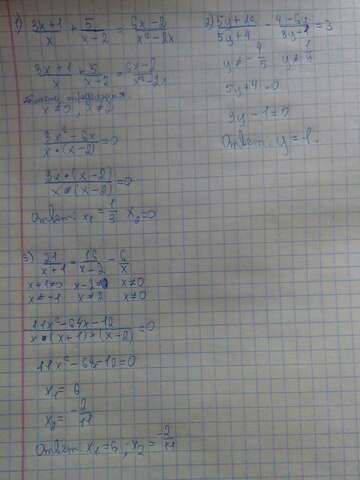 1) (3x+1)/x + 5/(x-2) = (6x-2)/(x²-2x)
(3x+1)/x + 5/(x-2) = (6x-2)/(x²-2x)
x≠0, x≠2
(3x²-6x)/(x·(x-2)) = 0
(3x·(x-2))/(x·(x-2)) = 0
Ответ: x₁ = 1/3 x₂=0
2) =3
y≠-4/5 y≠1/3
5y+4≠0
3y-1=0
Ответ: y=1.
3) 21/(x+1) = 16/(x-2) - 6/x
x+1≠0 x-2≠0 x≠0
x≠-1 x≠2 x≠0
(11x²-64x-12)/(x·(x+1)·(x-2)) = 0
x₁= 6
x₂= -2/11
Ответ: x₁=6, x₂= -2/11